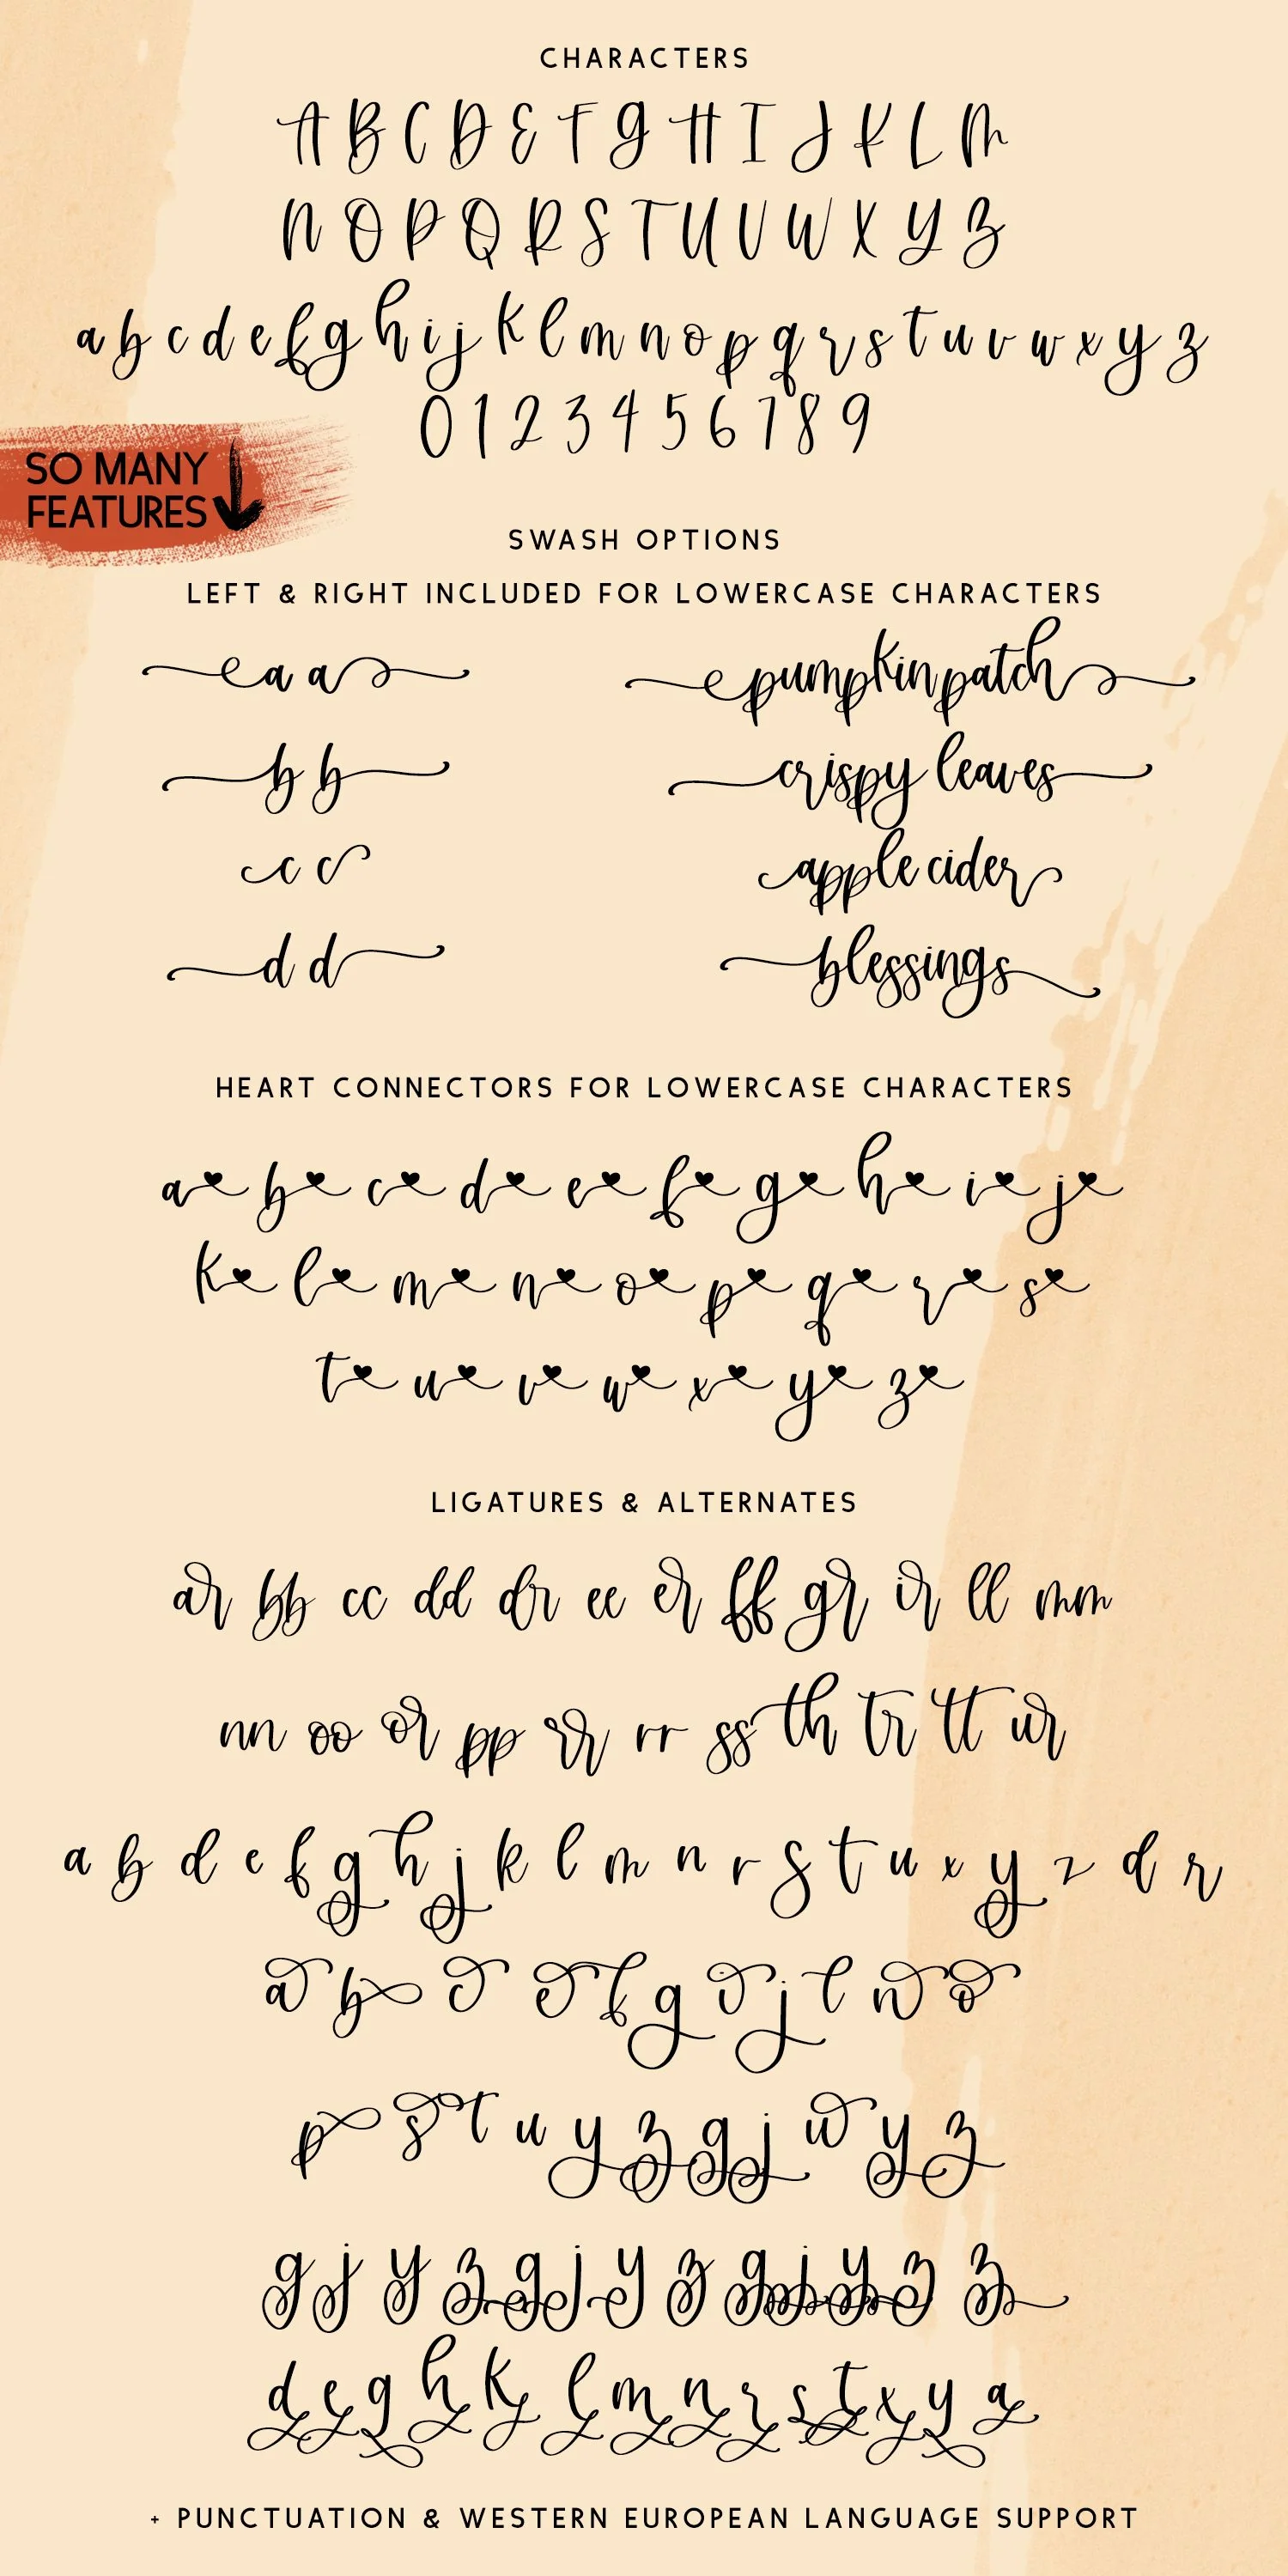 CHARACTERS
A B C D E F G H I J K L M
N O P Q R S T U V W X Y Z
a b c d e f g h i j k l m n o p q r s t u v w x y z
0 1 2 3 4 5 6 7 8 9
SO MANY
FEATURES
SWASH OPTIONS
LEFT & RIGHT INCLUDED FOR LOWERCASE CHARACTERS
a a
pumpkin patch
b b
crispy leaves
c c
apple cider
d d
blessings
HEART CONNECTORS FOR LOWERCASE CHARACTERS
a b c d e f g h i j
k l m n o p q r s
t u v w x y z
LIGATURES & ALTERNATES
ar bb cc dd dr ee er ff gr ir ll mm
nn oo or pp rr rr ss th tr tt ur
a b d e f g h j k l m n r s t u x y z d r
a b c e f g i j l n o
p s t u y z g j w y z
g j y z g j y z g j y z z
d e g h k l m n r s t x y a
+ PUNCTUATION & WESTERN EUROPEAN LANGUAGE SUPPORT